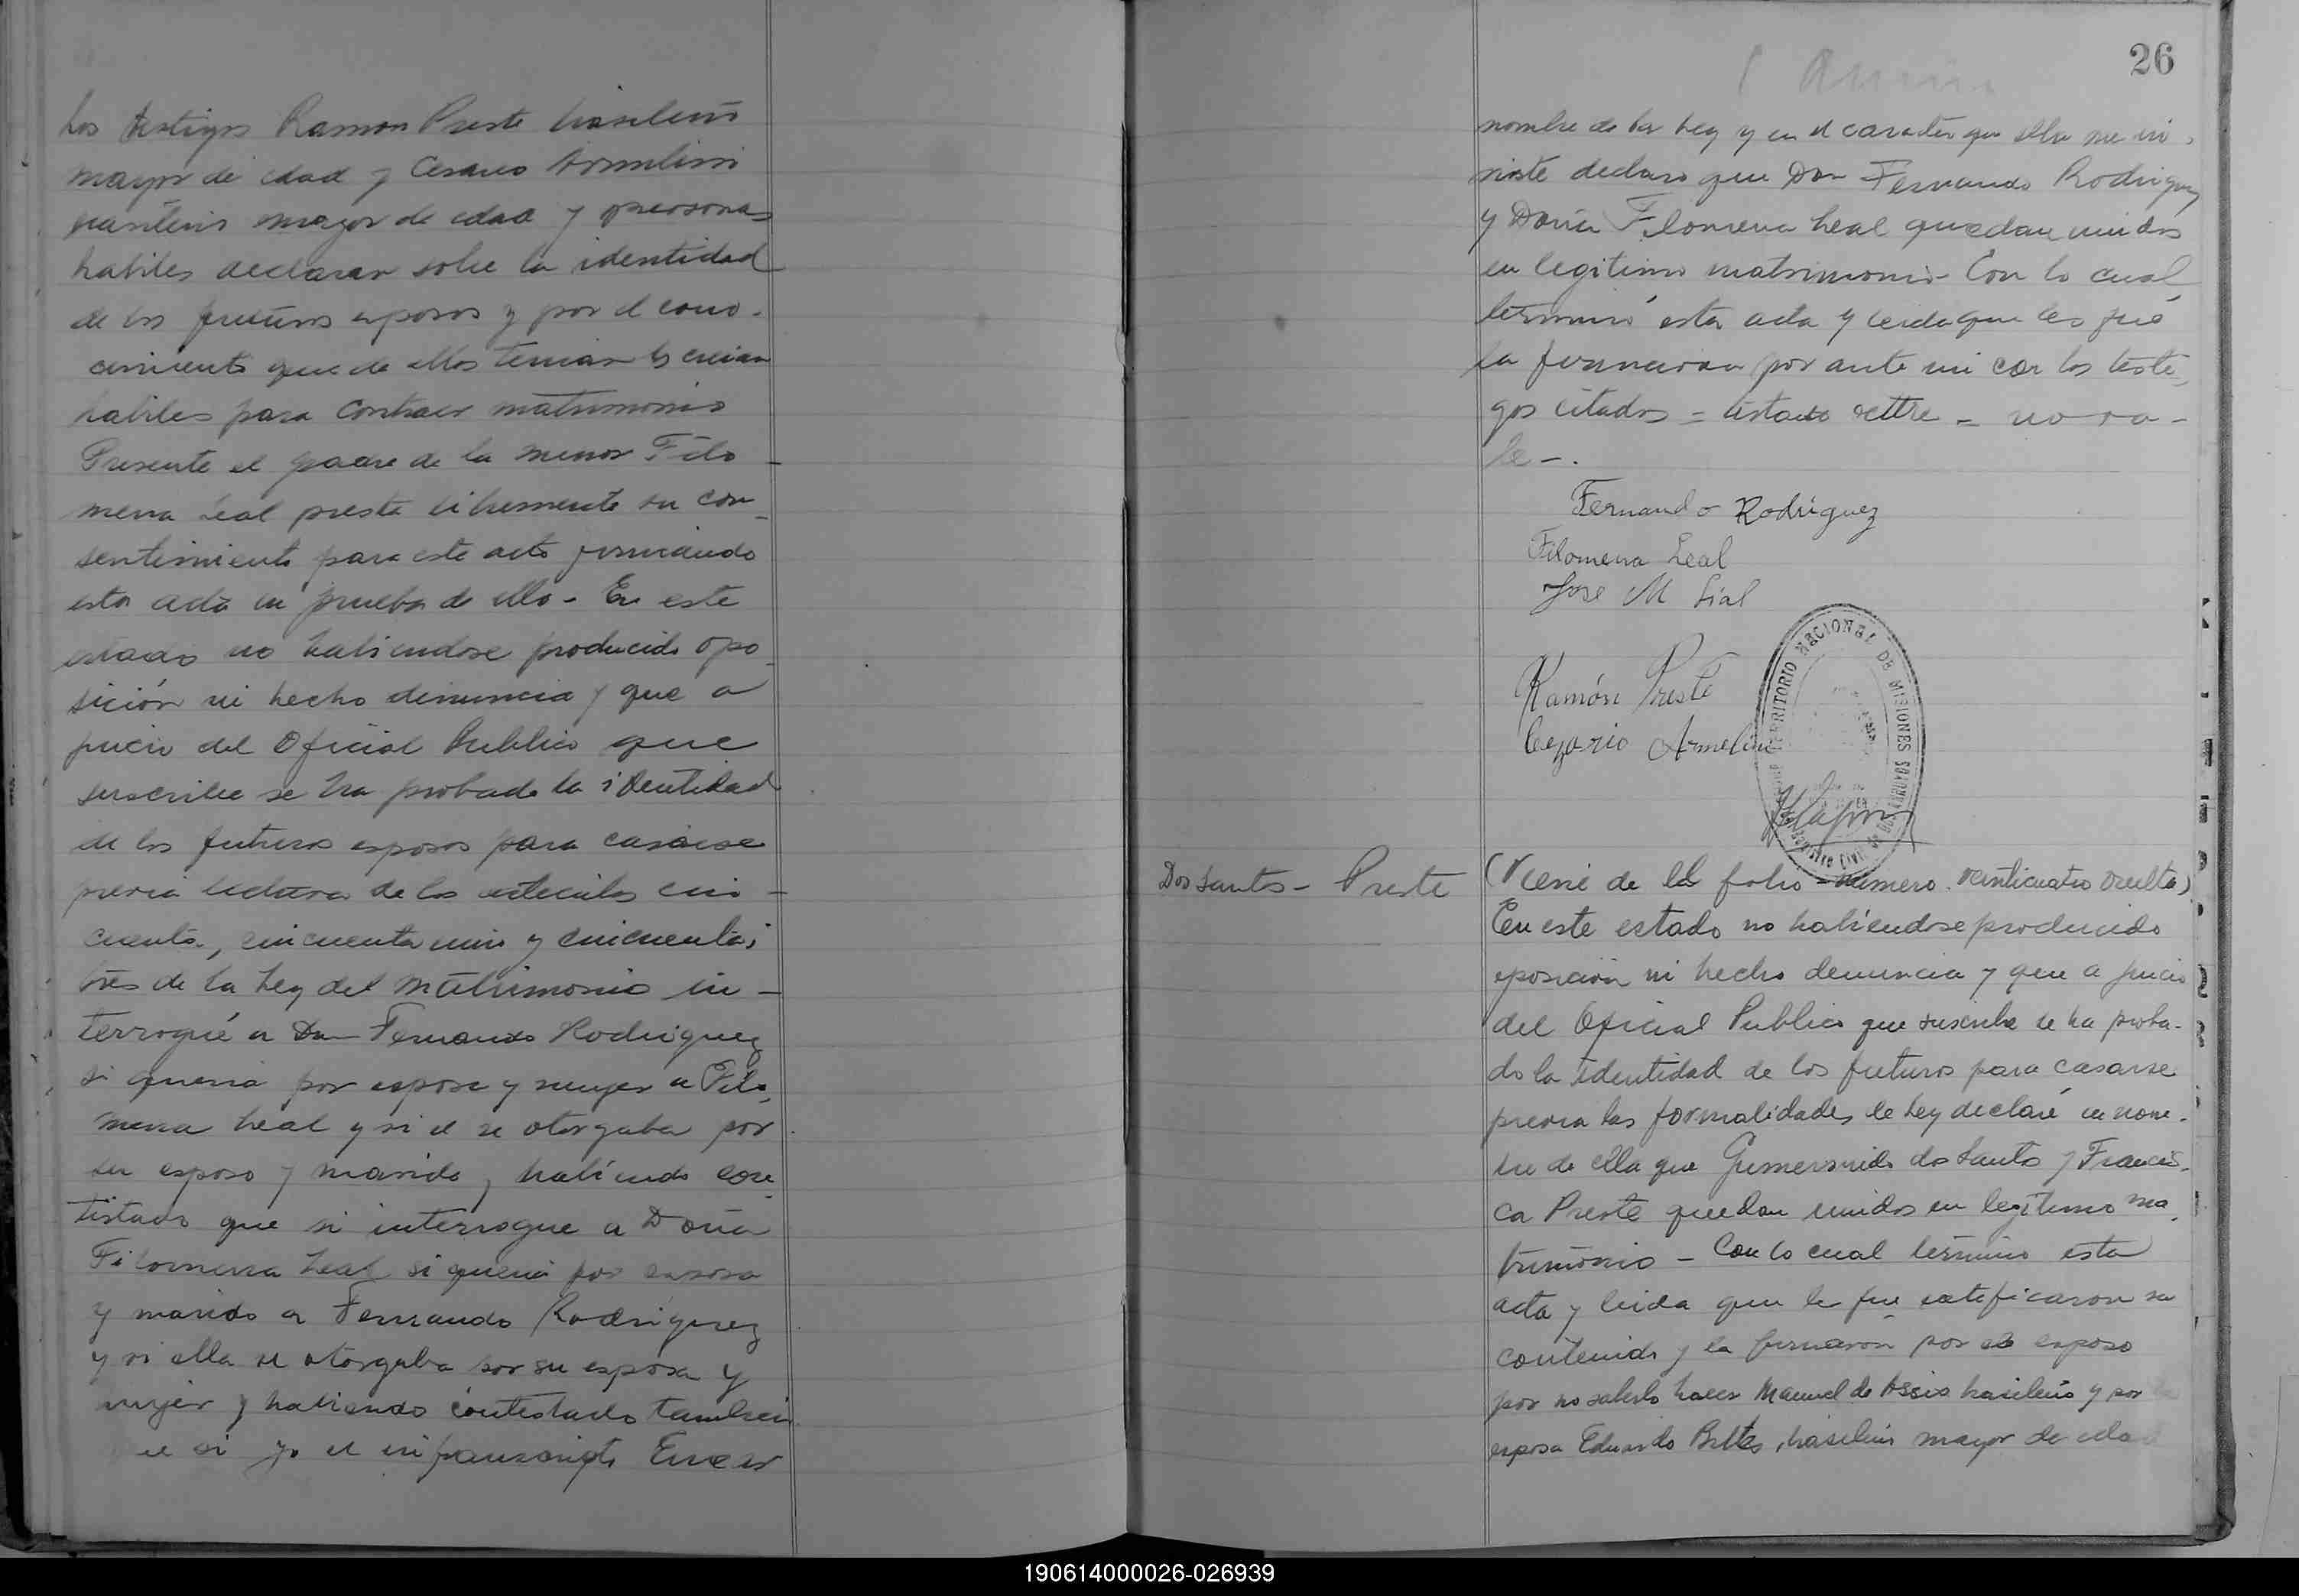 Los testigos Ramon Preste brasilero
mayor de edad y Cesareo Armelini
brasilero mayor de edad y personas
habiles declaran sobre la identidad
de los futuros esposos y por el cono-
cimiento que de ellos tenian los creian
habiles para contraer matrimonio
Presente el padre de la menor Filo
mena Leal presta libremente su con
sentimiento para este acto firmando
esta acta en prueba de ello - En este
estado no habiendose producido opo
sición ni hecho denuncia y que a
juicio del Oficial Publico que
suscribe se ha probado la identidad
de los futuros esposos para casarse
previa lectura de los articulos cin-
cuenta, cincuenta uno y cincuentai
tres de la Ley del Matrimonio in-
terrogué a Don Fernando Rodriguez
si queria por esposa y mujer a Filo
mena Leal y si el se otorgaba por
su esposo y marido, habiendo con
testado que si interrogue a Doña
Filomena Leal si queria por esposo
y marido a Fernando Rodriguez
y si ella se otorgaba por su esposa y
mujer y habiendo contestado tambien
que si yo el infrascripto En
26
nombre de la Ley y en el caracter que ella me in
viste declaro que Don Fernando Rodriguez
y Doña Filomena Leal quedan unidos
en legitimo matrimonio - Con lo cual
terminó esta acta y leida que les fué
la firmaron por ante mi con los testi
gos citados = - no va-
le - .
Fernando Rodriguez
Filomena Leal
Jose M Lial
Ramón Preste
Cezario Armelini
TERRITORIO NACIONAL DE MISIONES
Registro Civil de
Dos Santos - Preste
(Viene de el folio número veinticuatro vuelta)
En este estado no habiendose producido
oposicion ni hecho denuncia y que a juicio
del Oficial Publico que suscribe se ha proba-
do la identidad de los futuros para casarse
previa las formalidades de Ley declaré en nom-
bre de ella que Gumersindo dos Santos y Francis-
ca Preste quedan unidos en legitimo ma
trimonio - Con lo cual termino esta
acta y leida que le fue ratificaron su
contenido y la firmaron por el esposo
por no saberlo hacer Manuel de Assis brasilero y por
esposa Eduardo Beltes, brasilero mayor de edad